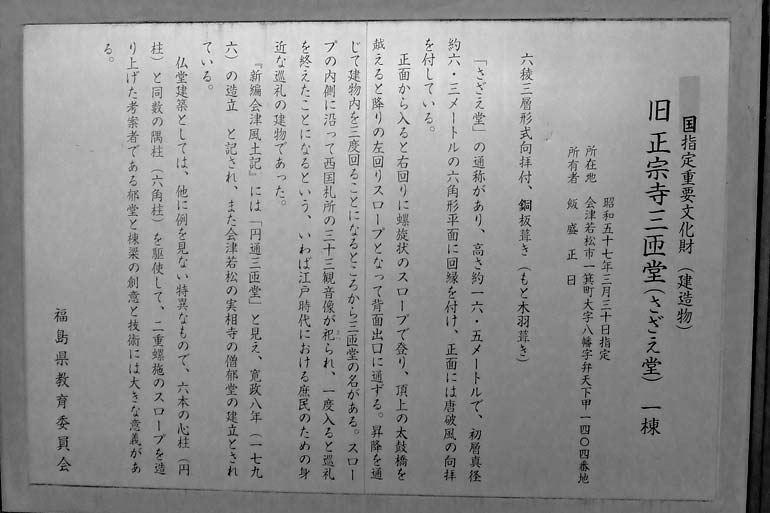 国指定重要文化財（建造物）
旧正宗寺三匝堂（さざえ堂）　一棟
昭和五十七年三月三十日指定
所在地　会津若松市一箕町大字八幡字弁天下甲一四〇四番地
所有者　飯盛正日
六稜三層形式向拝付、銅板葺き（もと木羽葺き）
「さざえ堂」の通称があり、高さ約一六・五メートルで、初層真径
約六・三メートルの六角形平面に回縁を付け、正面には唐破風の向拝
を付している。
正面から入ると右回りに螺旋状のスロープで登り、頂上の太鼓橋を
越えると降りの左回りスロープとなって背面出口に通ずる。昇降を通
じて建物内を三度回ることになるところから三匝堂の名がある。スロー
プの内側に沿って西国札所の三十三観音像が祀られ、一度入ると巡礼
を終えたことになるという、いわば江戸時代における庶民のための身
近な巡礼の建物であった。
『新編会津風土記』には「円通三匝堂」と見え、寛政八年（一七九
六）の造立　と記され、また会津若松の実相寺の僧郁堂の建立とされ
ている。
仏堂建築としては、他に例を見ない特異なもので、六本の心柱（円
柱）と同数の隅柱（六角柱）を駆使して、二重螺施のスロープを造
り上げた考案者である郁堂と棟梁の創意と技術には大きな意義があ
る。
福島県教育委員会